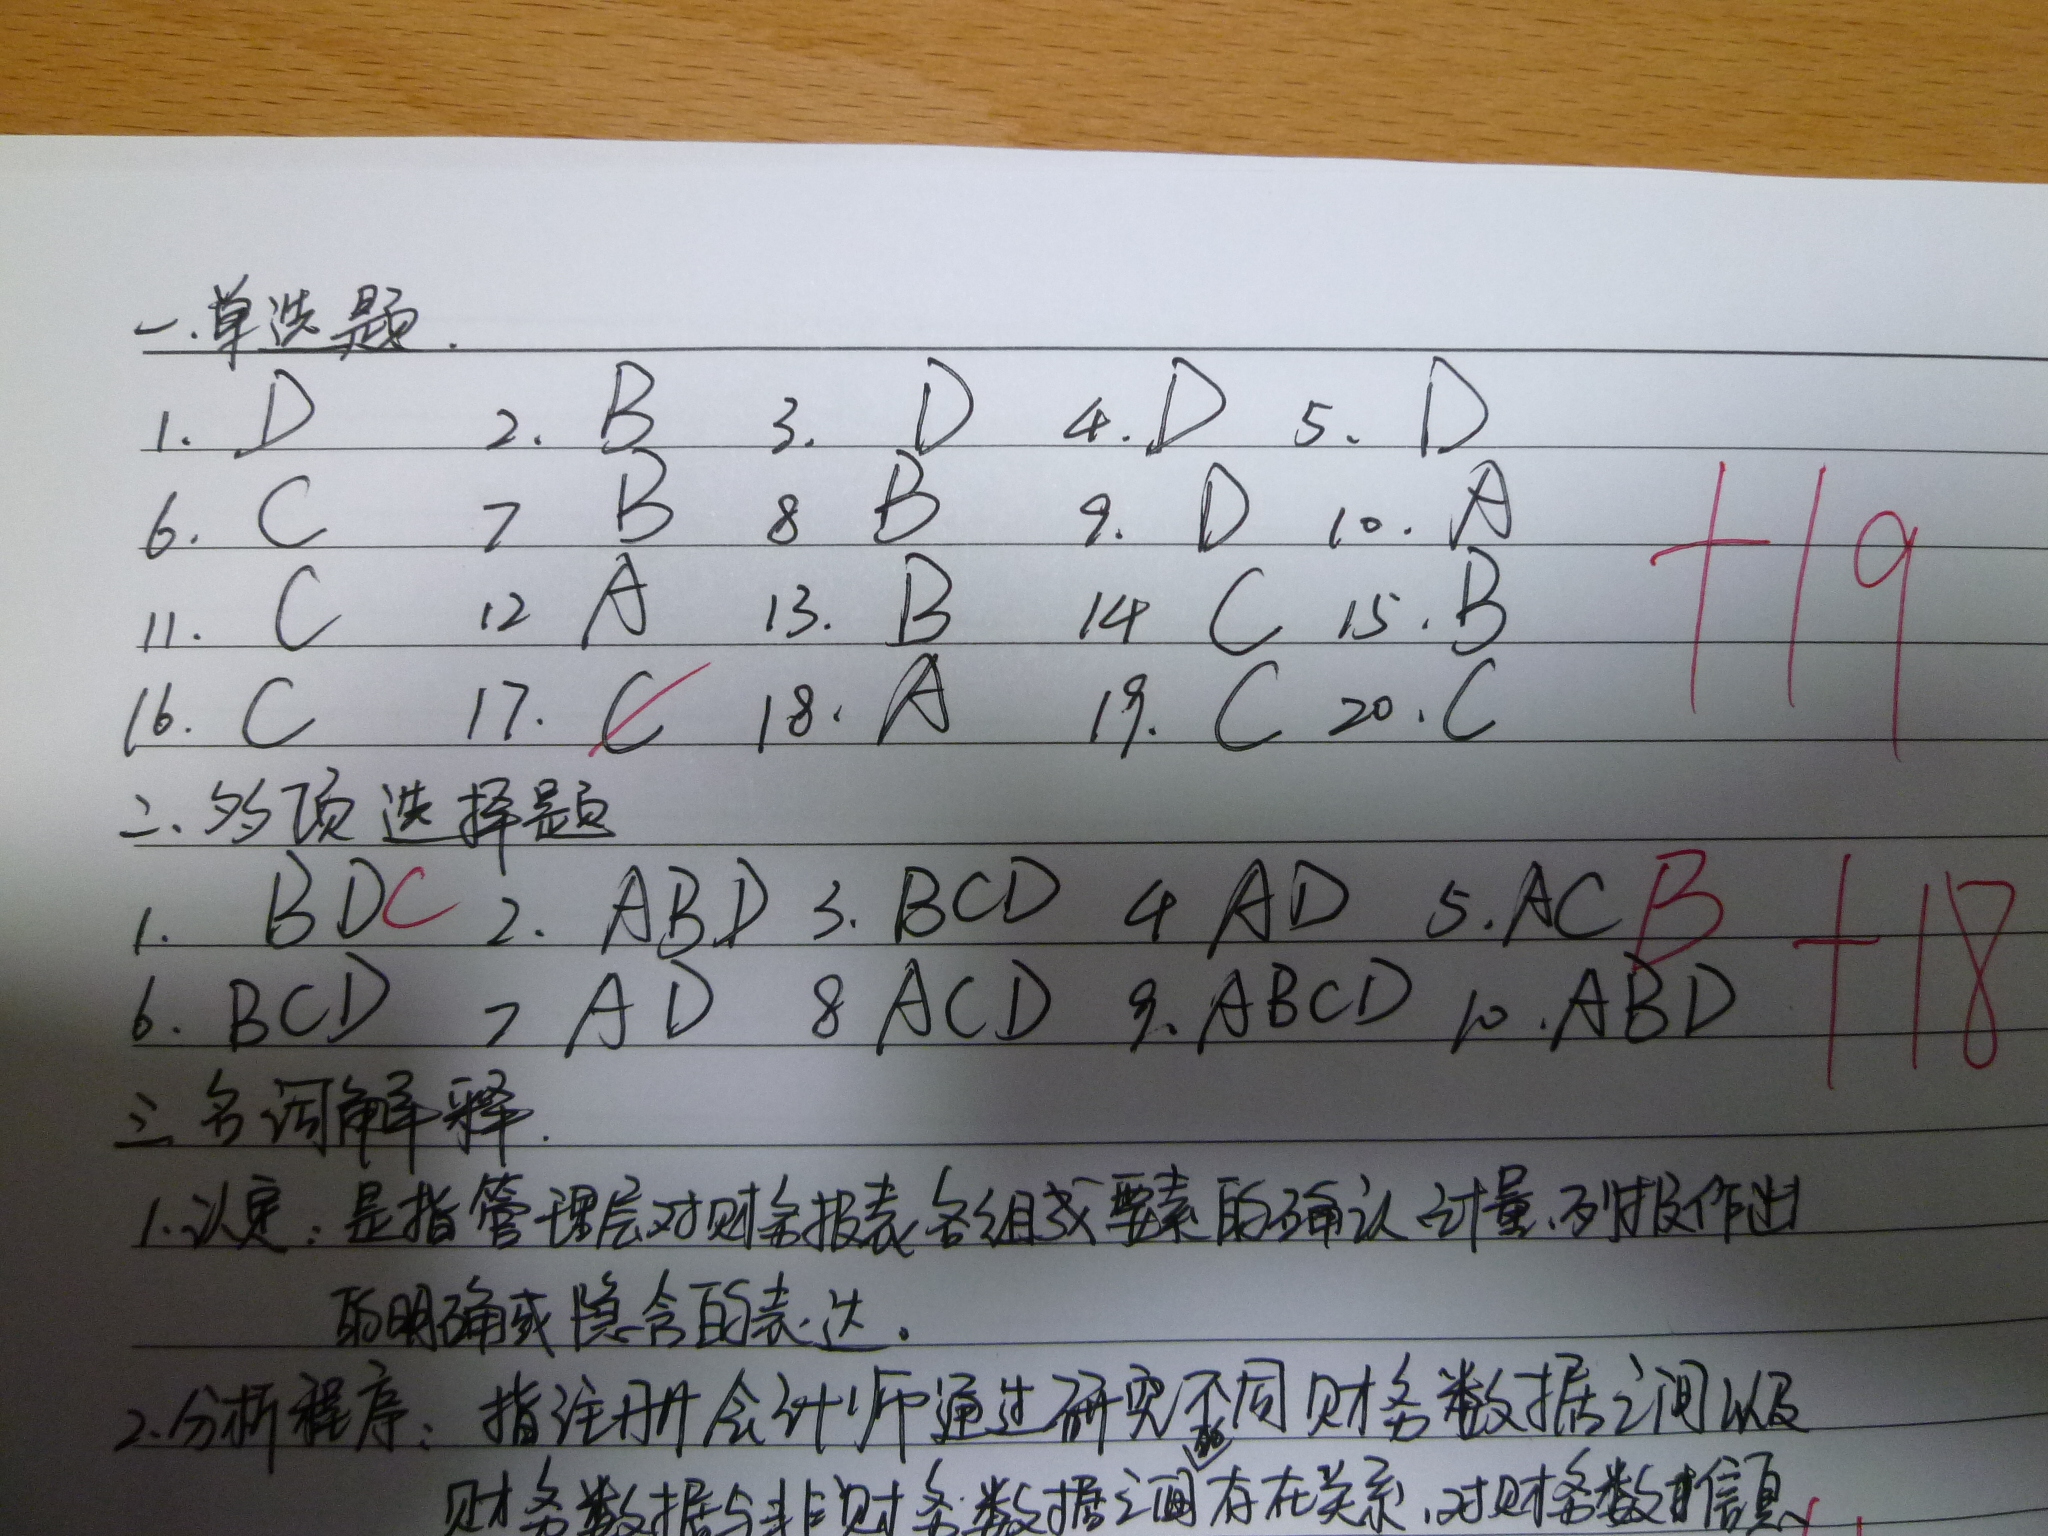 一.单选题.
1. D 2. B 3. D 4. D 5. D
6. C 7 B 8 B 9. D 10. A
11. C 12 A 13. B 14 C 15. B
+19
16. C 17. C 18. A 19. C 20. C
二、多项选择题
1. BDC 2. ABD 3. BCD 4 AD 5. ACB
+18
6. BCD 7 AD 8 ACD 9. ABCD 10. ABD
三.名词解释.
1.认定:是指管理层对财务报表各组成要素的确认、计量、列报作出
的明确或隐含的表达。
2.分析程序:指注册会计师通过研究不同财务数据之间以及
财务数据与非财务数据之间的存在关系,对财务数据信息